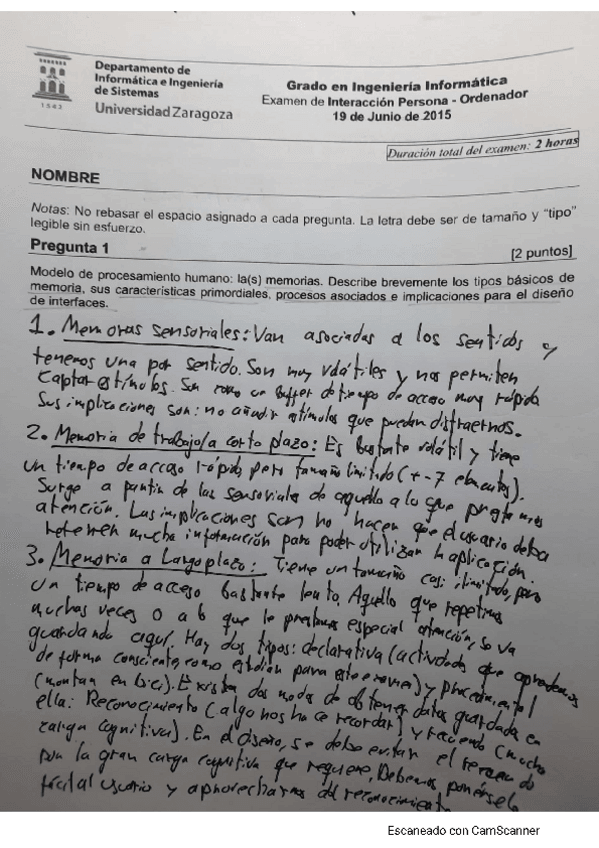 Departamento de
Informática e Ingeniería
de Sistemas
Universidad Zaragoza
1543
Grado en Ingeniería Informática
Examen de Interacción Persona - Ordenador
19 de Junio de 2015
Duración total del examen: 2 horas
NOMBRE
Notas: No rebasar el espacio asignado a cada pregunta. La letra debe ser de tamaño y "tipo"
legible sin esfuerzo.
Pregunta 1
[2 puntos]
Modelo de procesamiento humano: la(s) memorias. Describe brevemente los tipos básicos de
memoria, sus características primordiales, procesos asociados e implicaciones para el diseño
de interfaces.
1. Memorias sensoriales: Van asociadas a los sentidos y
tenemos una por sentido. Son muy volátiles y nos permiten
captar estímulos. Son como un buffer de tiempo de acceso muy rápido
Sus implicaciones son: no añadir estímulos que puedan distraernos.
2. Memoria de trabajo/a corto plazo: Es bastante volátil y tiene
un tiempo de acceso rápido pero tamaño limitado (+-7 elementos).
Surge a partir de las sensoriales de aquello a lo que prestamos
atención. Las implicaciones son no hacer que el usuario deba
retener mucha información para poder utilizar la aplicación.
3. Memoria a Largo plazo: Tiene un tamaño casi ilimitado, pero
un tiempo de acceso bastante lento. Aquello que repetimos
muchas veces o a lo que le prestamos especial atención, se va
guardando aquí. Hay dos tipos: declarativa (actividades que aprendemos
de forma consciente, como estudiar para este examen) y procedimental
(montar en bici). Existen dos modos de obtener datos guardados en
ella: Reconocimiento (algo nos hace recordar) y recuerdo (mucha
carga cognitiva). En el diseño, se debe evitar el recuerdo
por la gran carga cognitiva que requiere. Debemos ponérselo
fácil al usuario y aprovecharnos del reconocimiento
Escaneado con CamScanner